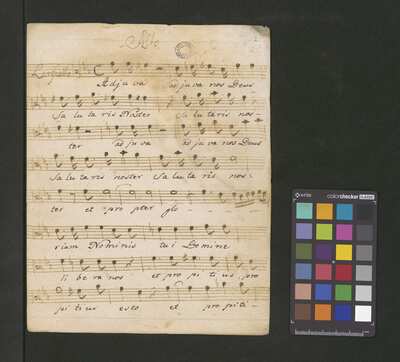 Alto
Larghetto
Adjuva adjuva nos Deus
Salutaris Noster Salutaris nos-
ter adjuva adjuva nos Deus
Salutaris noster Salutaris nos-
ter et propter glo-
riam Nominis tui Domine
libera nos et propitius pro
pitius esto et propiti-
colorchecker CLASSIC